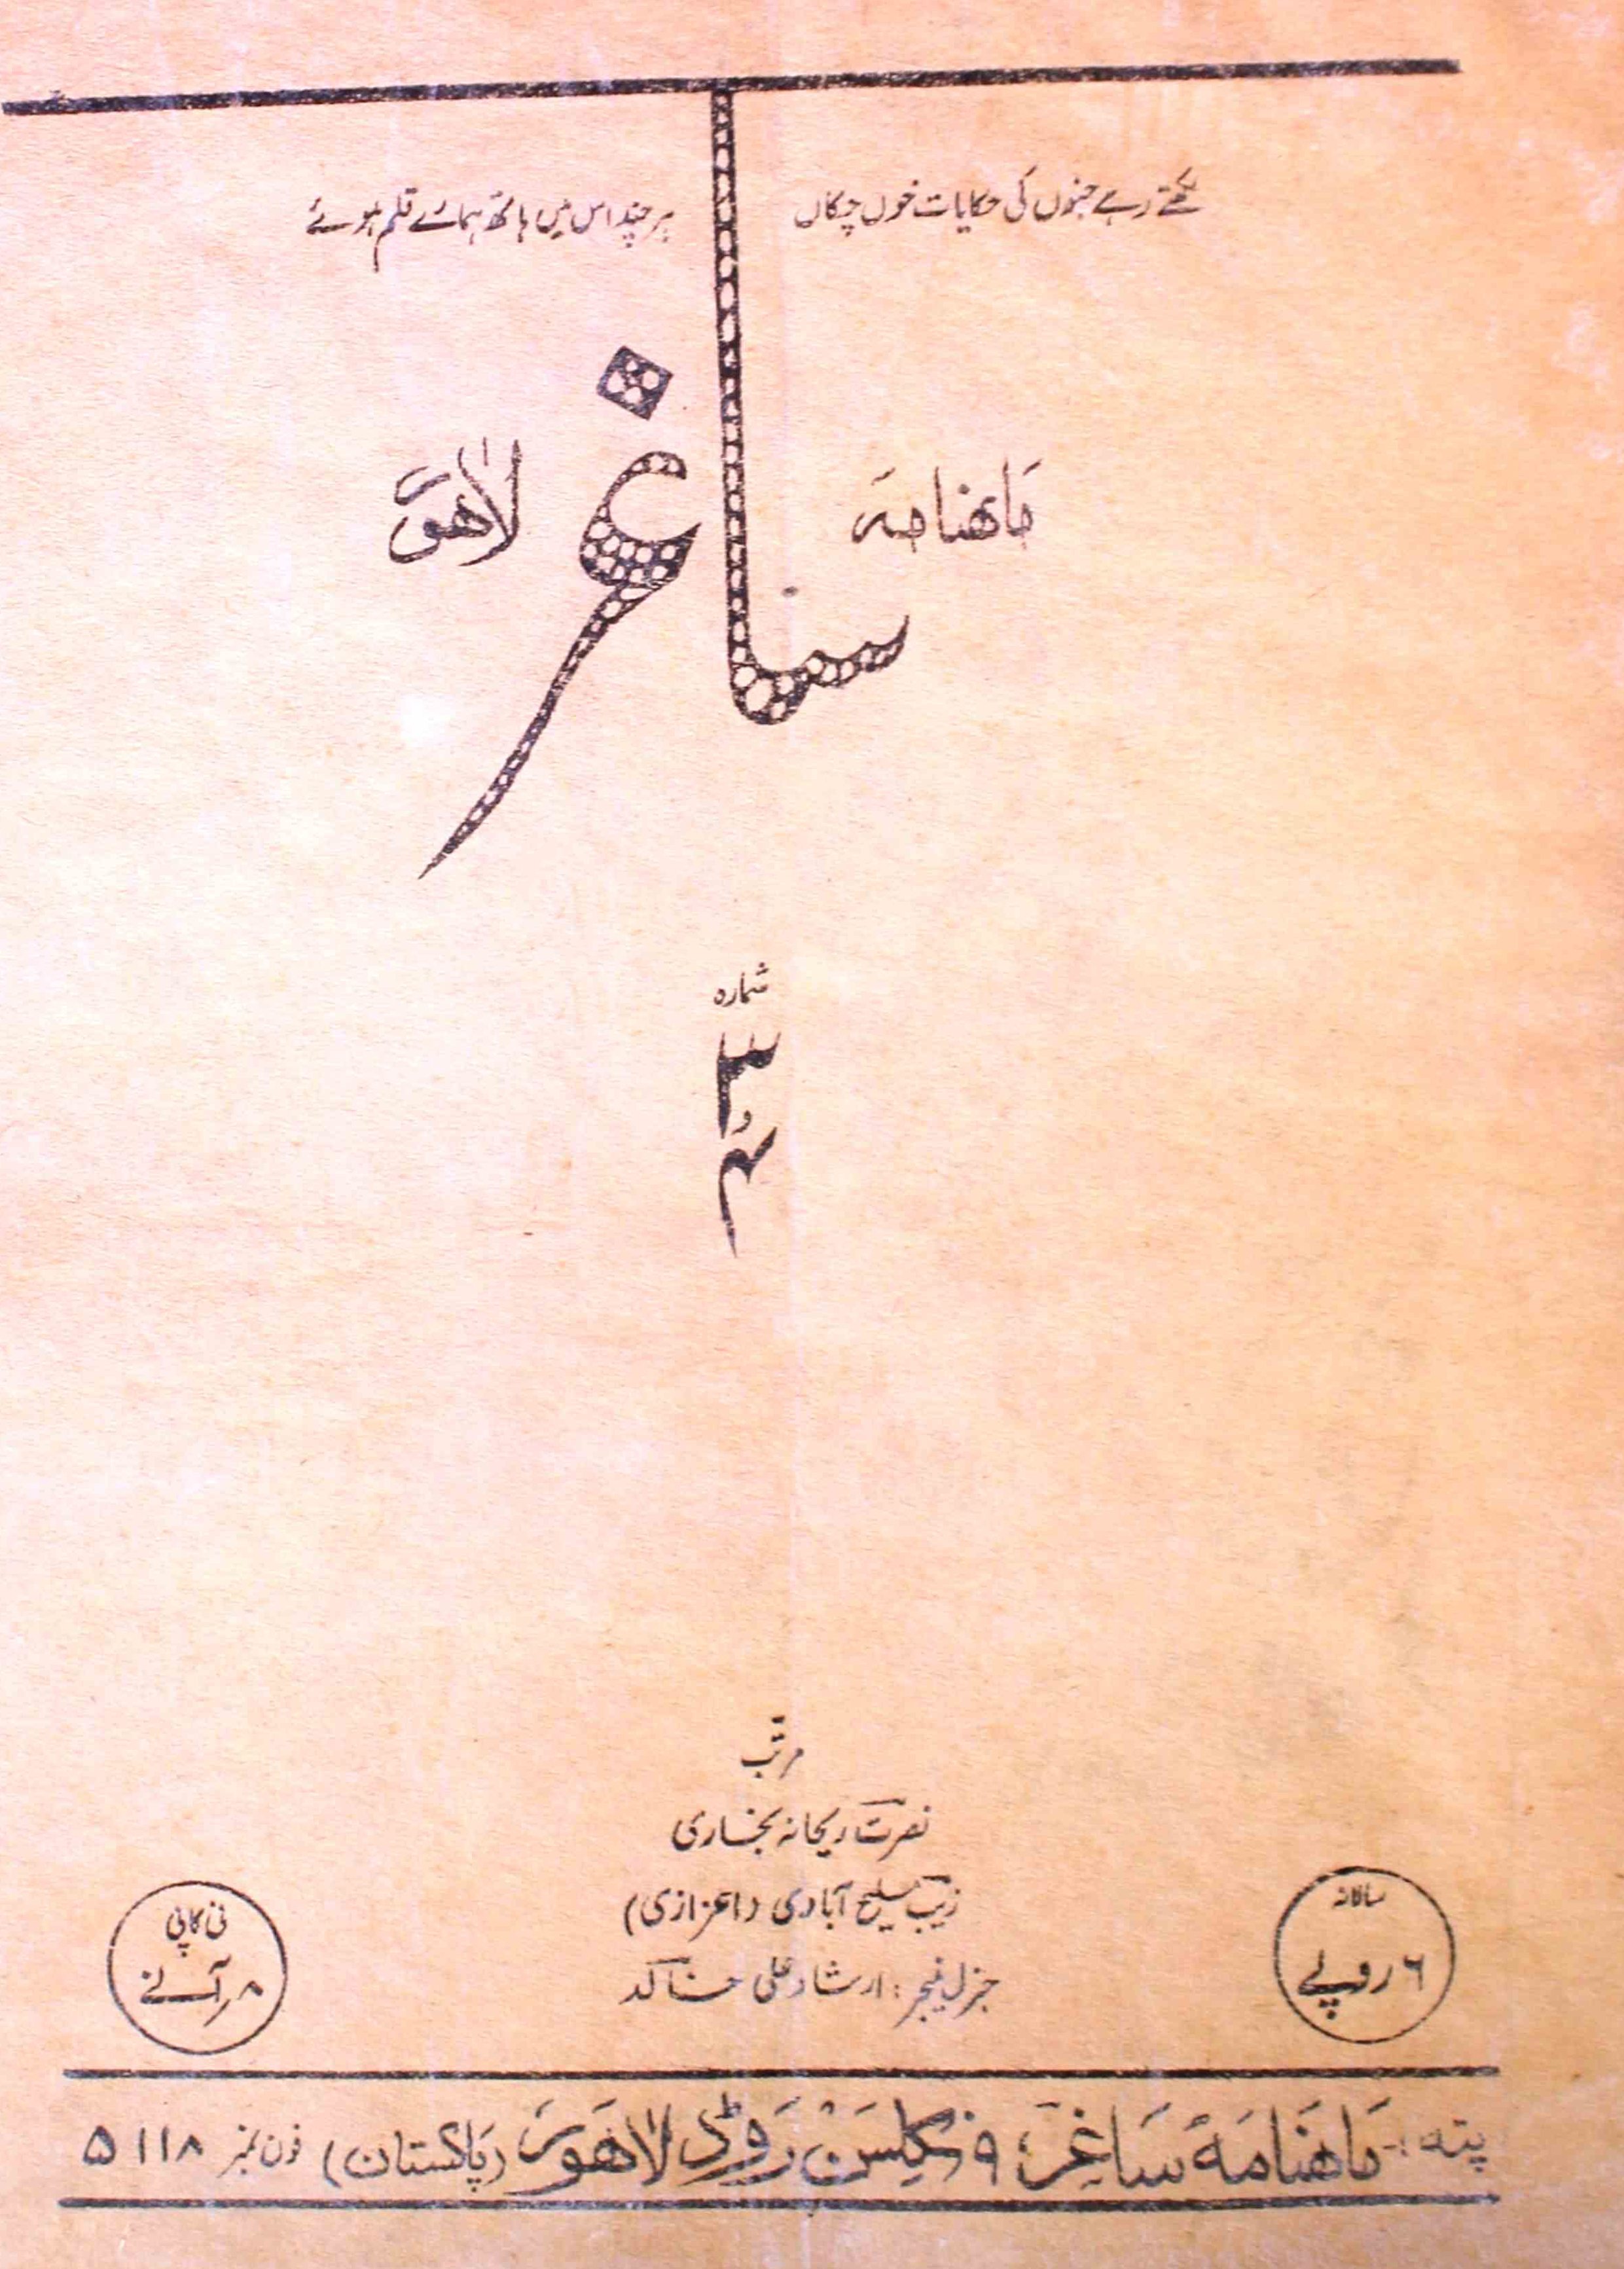 لکھتے رہے جنوں کی حکایات خوں چکاں
ہر چند اس میں ہاتھ ہمارے قلم ہوئے
ماہنامہ
ساغر
لاہور
شمارہ
۳
و
۴
مرتب
نصرت ریحانہ بخاری
زیب ملیح آبادی (اعزازی)
جنرل منیجر: ارشاد علی خاکد
سالانہ
۶ روپے
فی کاپی
۸ر آنے
پتہ :- ماہنامہ ساغر، ۹ نکلسن روڈ لاہور (پاکستان) فون نمبر ۵۱۱۸